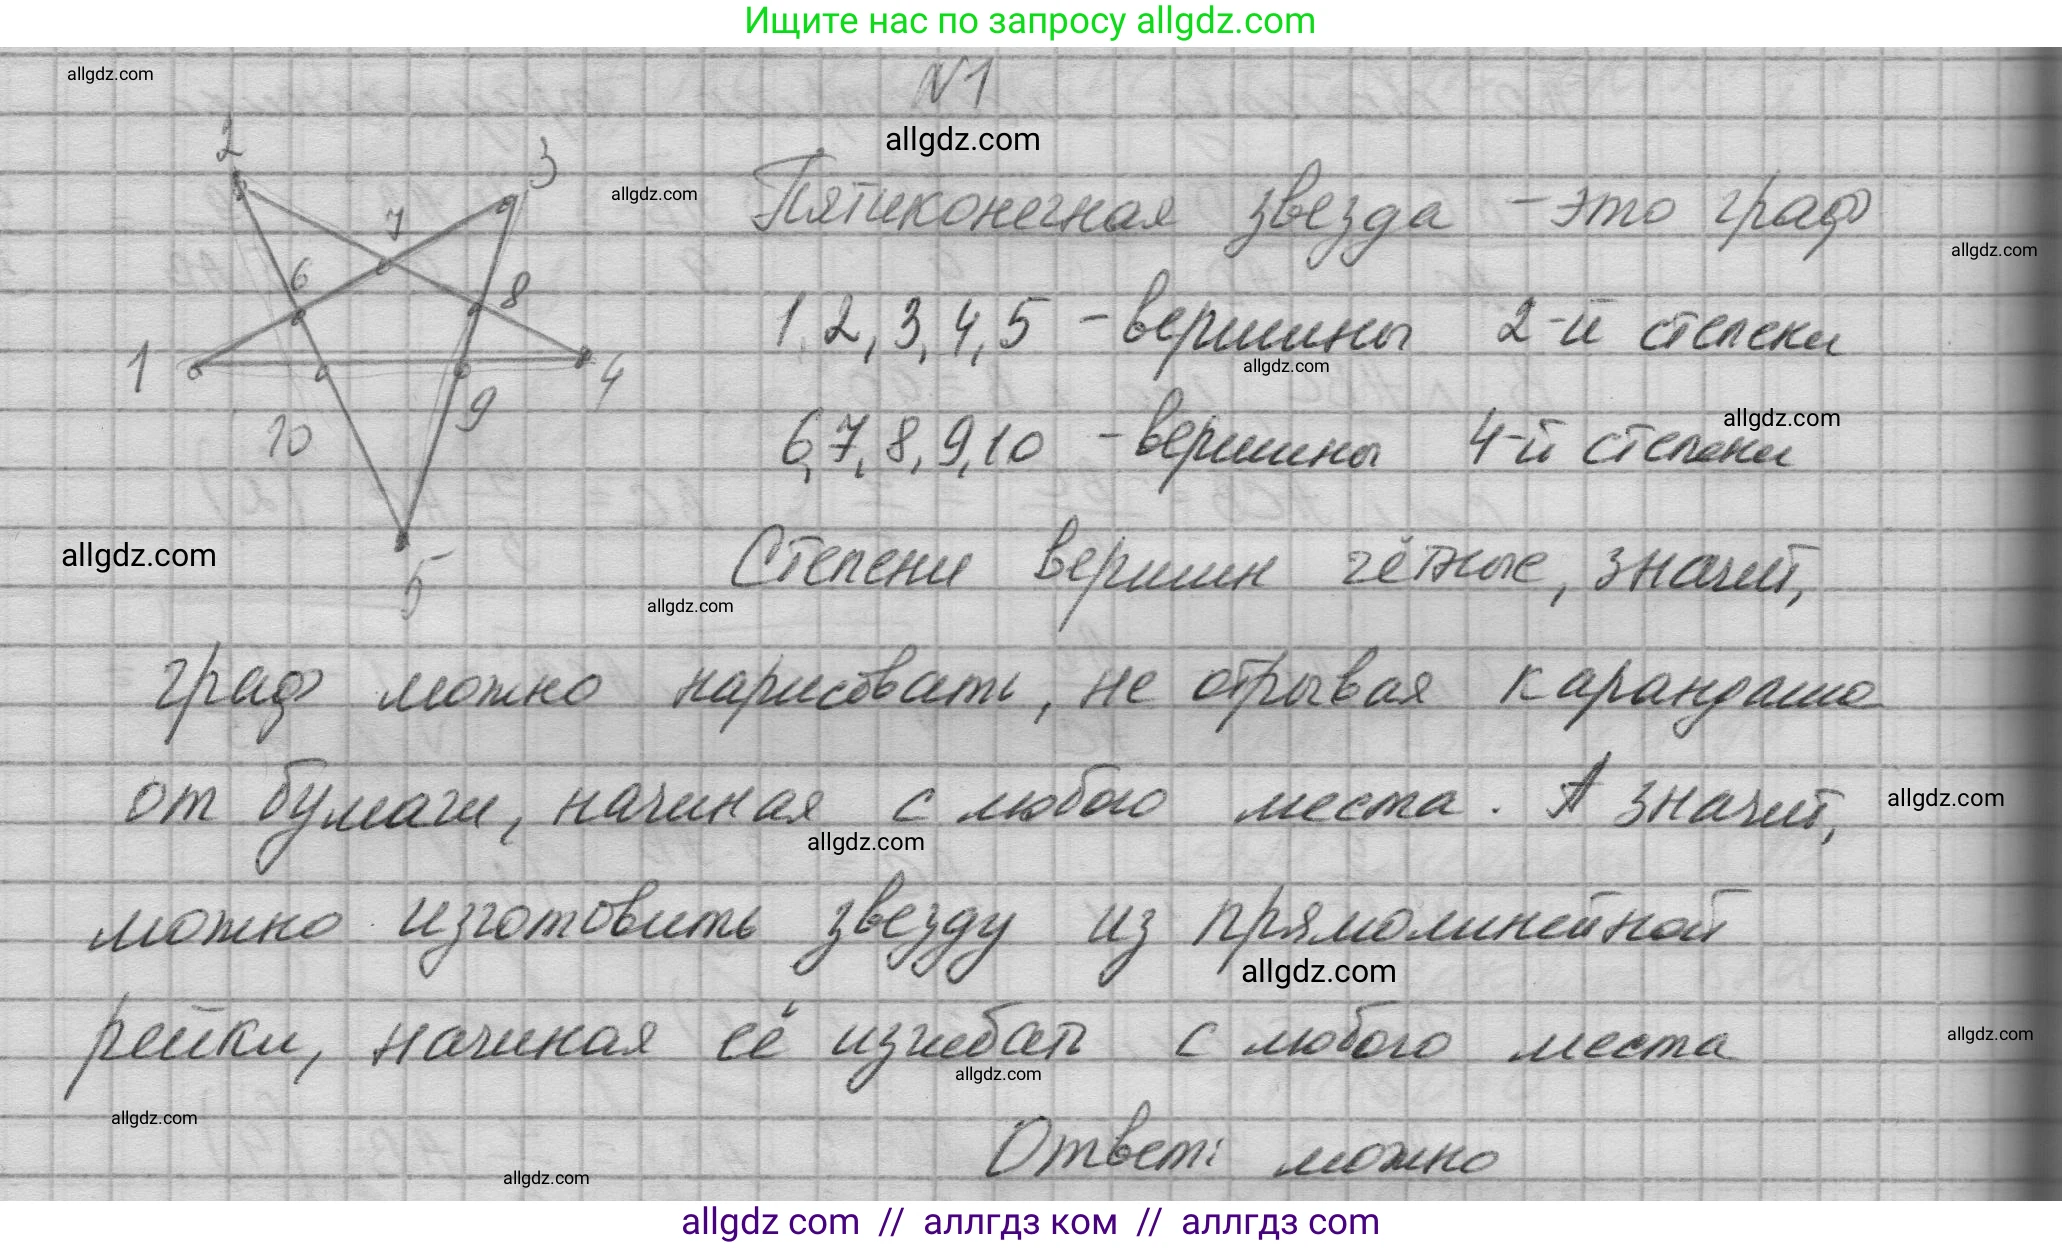 Ищите нас по запросу allgdz.com
allgdz.com
№1
allgdz.com
2
3
allgdz.com
Пятиконечная звезда - это граф
allgdz.com
7
6
8
1, 2, 3, 4, 5 - вершины 2-й степени
allgdz.com
1
4
allgdz.com
10
9
6, 7, 8, 9, 10 - вершины 4-й степени
allgdz.com
5
Степени вершин чётные, значит,
allgdz.com
граф можно нарисовать, не отрывая карандаша
от бумаги, начиная с любого места. А значит,
allgdz.com
allgdz.com
можно изготовить звезду из прямолинейной
allgdz.com
рейки, начиная её изгибать с любого места
allgdz.com
allgdz.com
allgdz.com
Ответ: можно
allgdz.com
allgdz com // аллгдз ком // аллгдз com